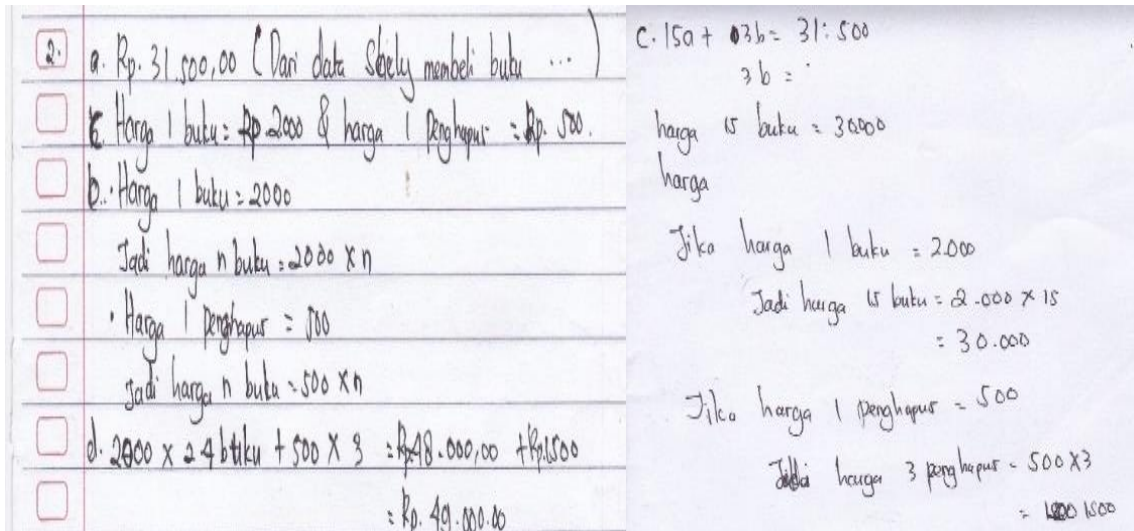 2. a. Rp. 31.500,00 (Dari data Shely membeli buku ...)
c Harga 1 buku = Rp 2000 & harga 1 Penghapus = Rp. 500.
b. • Harga 1 buku = 2000
Jadi harga n buku = 2000 x n
• Harga 1 penghapus = 500
Jadi harga n buku = 500 x n
d. 2000 x 24 buku + 500 x 3 = Rp 48.000,00 + Rp.1500
= Rp. 49.000.00
C. 15a + 3b = 31:500
3b =
harga 15 buku = 30000
harga
Jika harga 1 buku = 2000
Jadi harga 15 buku = 2.000 x 15
= 30.000
Jika harga 1 penghapus = 500
Jadi harga 3 penghapus = 500 x 3
= 1500